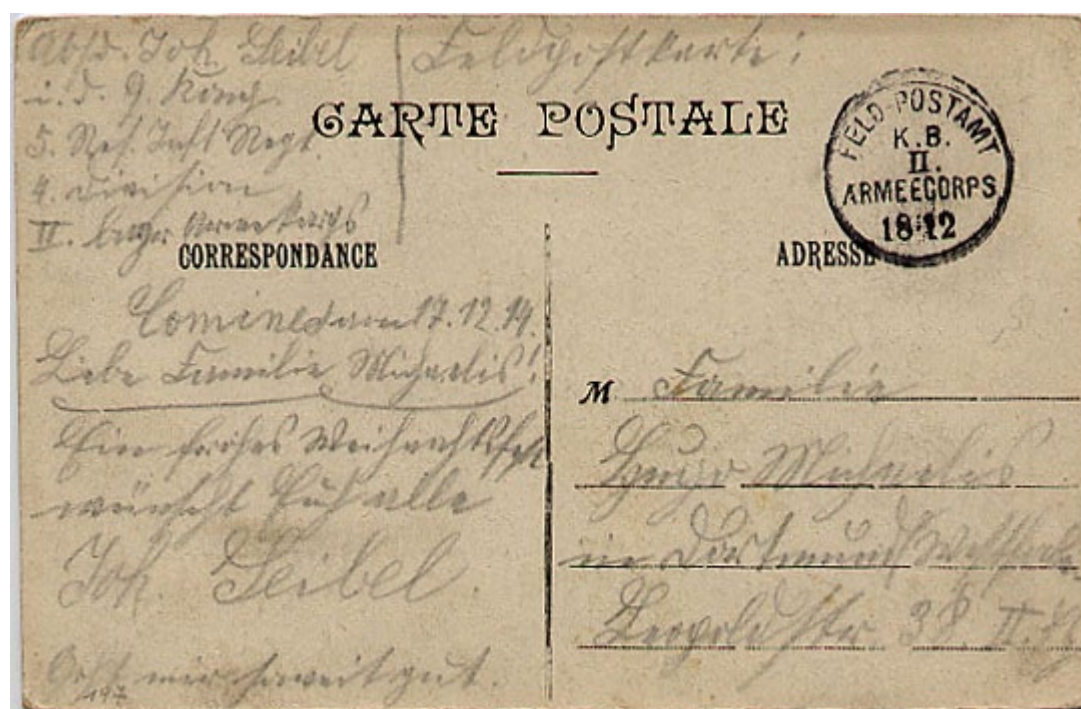 Absd. Joh. Seibel
i. d. 9. Komp.
5. Res. Inft Regt.
4. Division
II. bayr. Armee Korps
Feldpostkarte!
CARTE POSTALE
FELD-POSTAMT
K.B.
II.
ARMEECORPS
18 12
CORRESPONDANCE
ADRESSE
Comines den 17.12.14.
Liebe Familie Michaelis!
Ein frohes Weihnachtsfest
wünscht Euch alle
Joh. Seibel.
Geht mir soweit gut.
197
M Familie
Hugo Michaelis
in Dortmund Westfalen
Leopoldstr. 38. II.